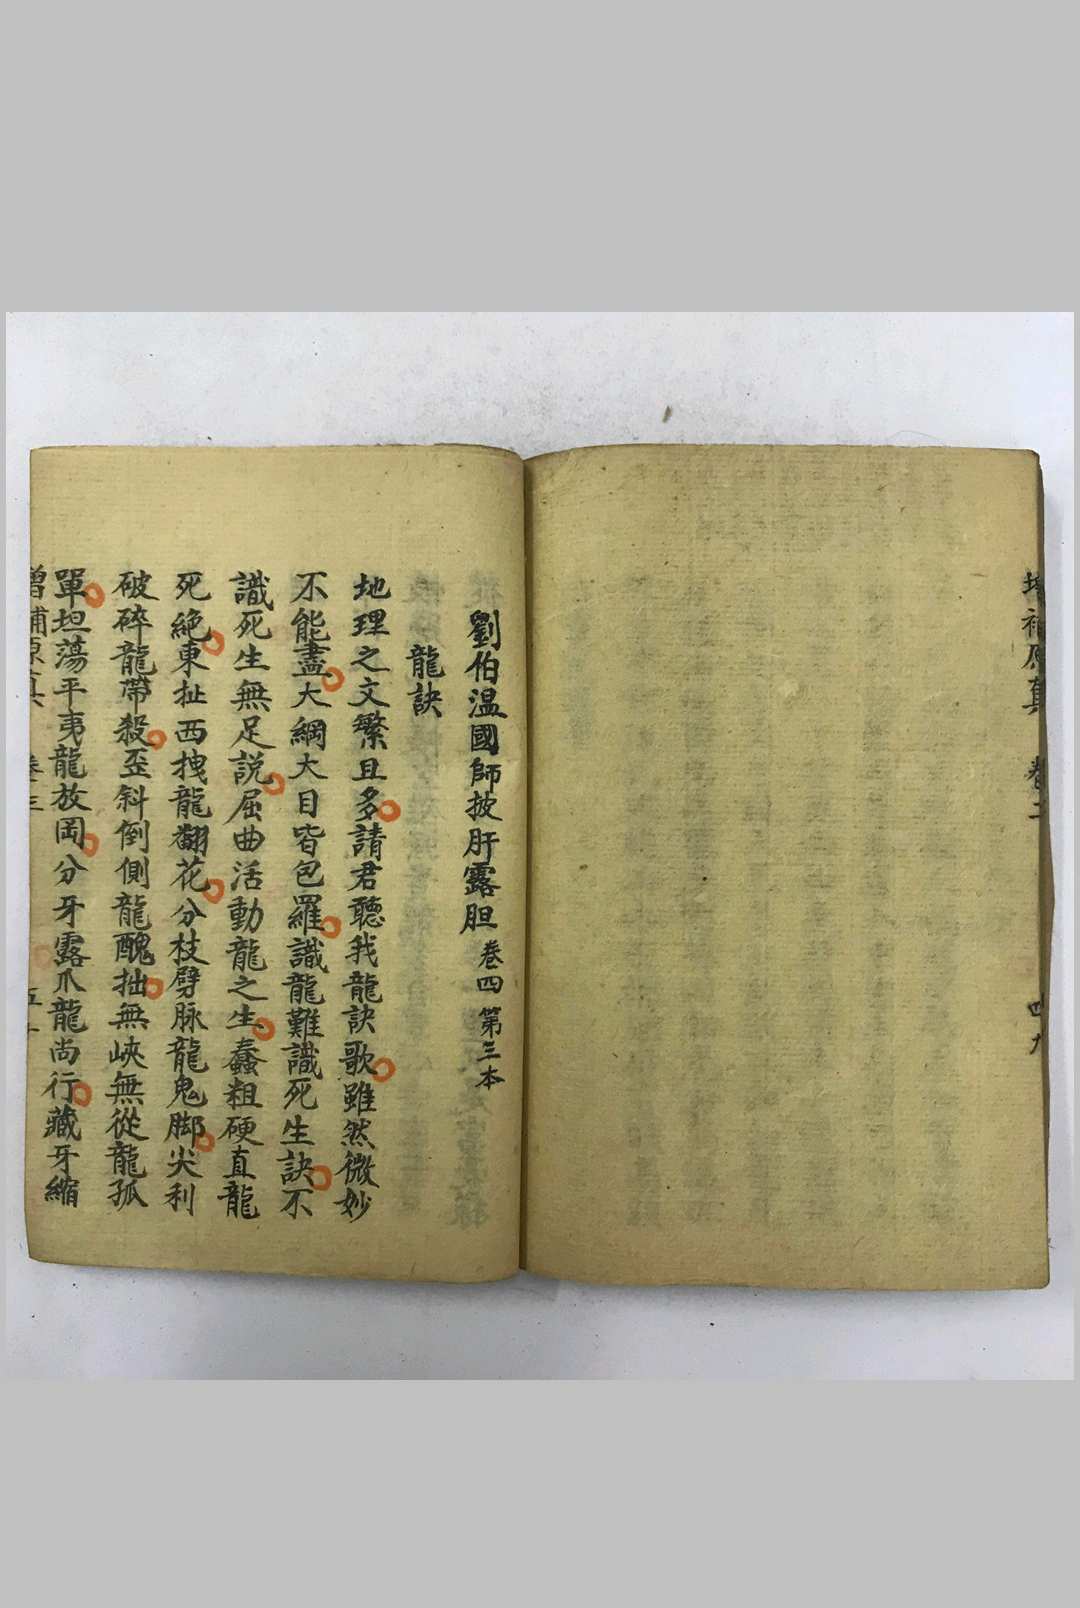 卷二
四九
劉伯温國師披肝露胆 卷四 第三本
龍訣
地理之文繁且多請君聽我龍訣歌雖然微妙
不能盡大綱大目皆包羅識龍難識死生訣不
識死生無足説屈曲活動龍之生蠢粗硬直龍
死絶東扯西拽龍翻花分枝劈脉龍鬼脚尖利
破碎龍帶殺歪斜倒側龍醜拙無峽無從龍孤
單坦蕩平夷龍放岡分牙露爪龍尚行藏牙縮
增補原真 卷三 五十